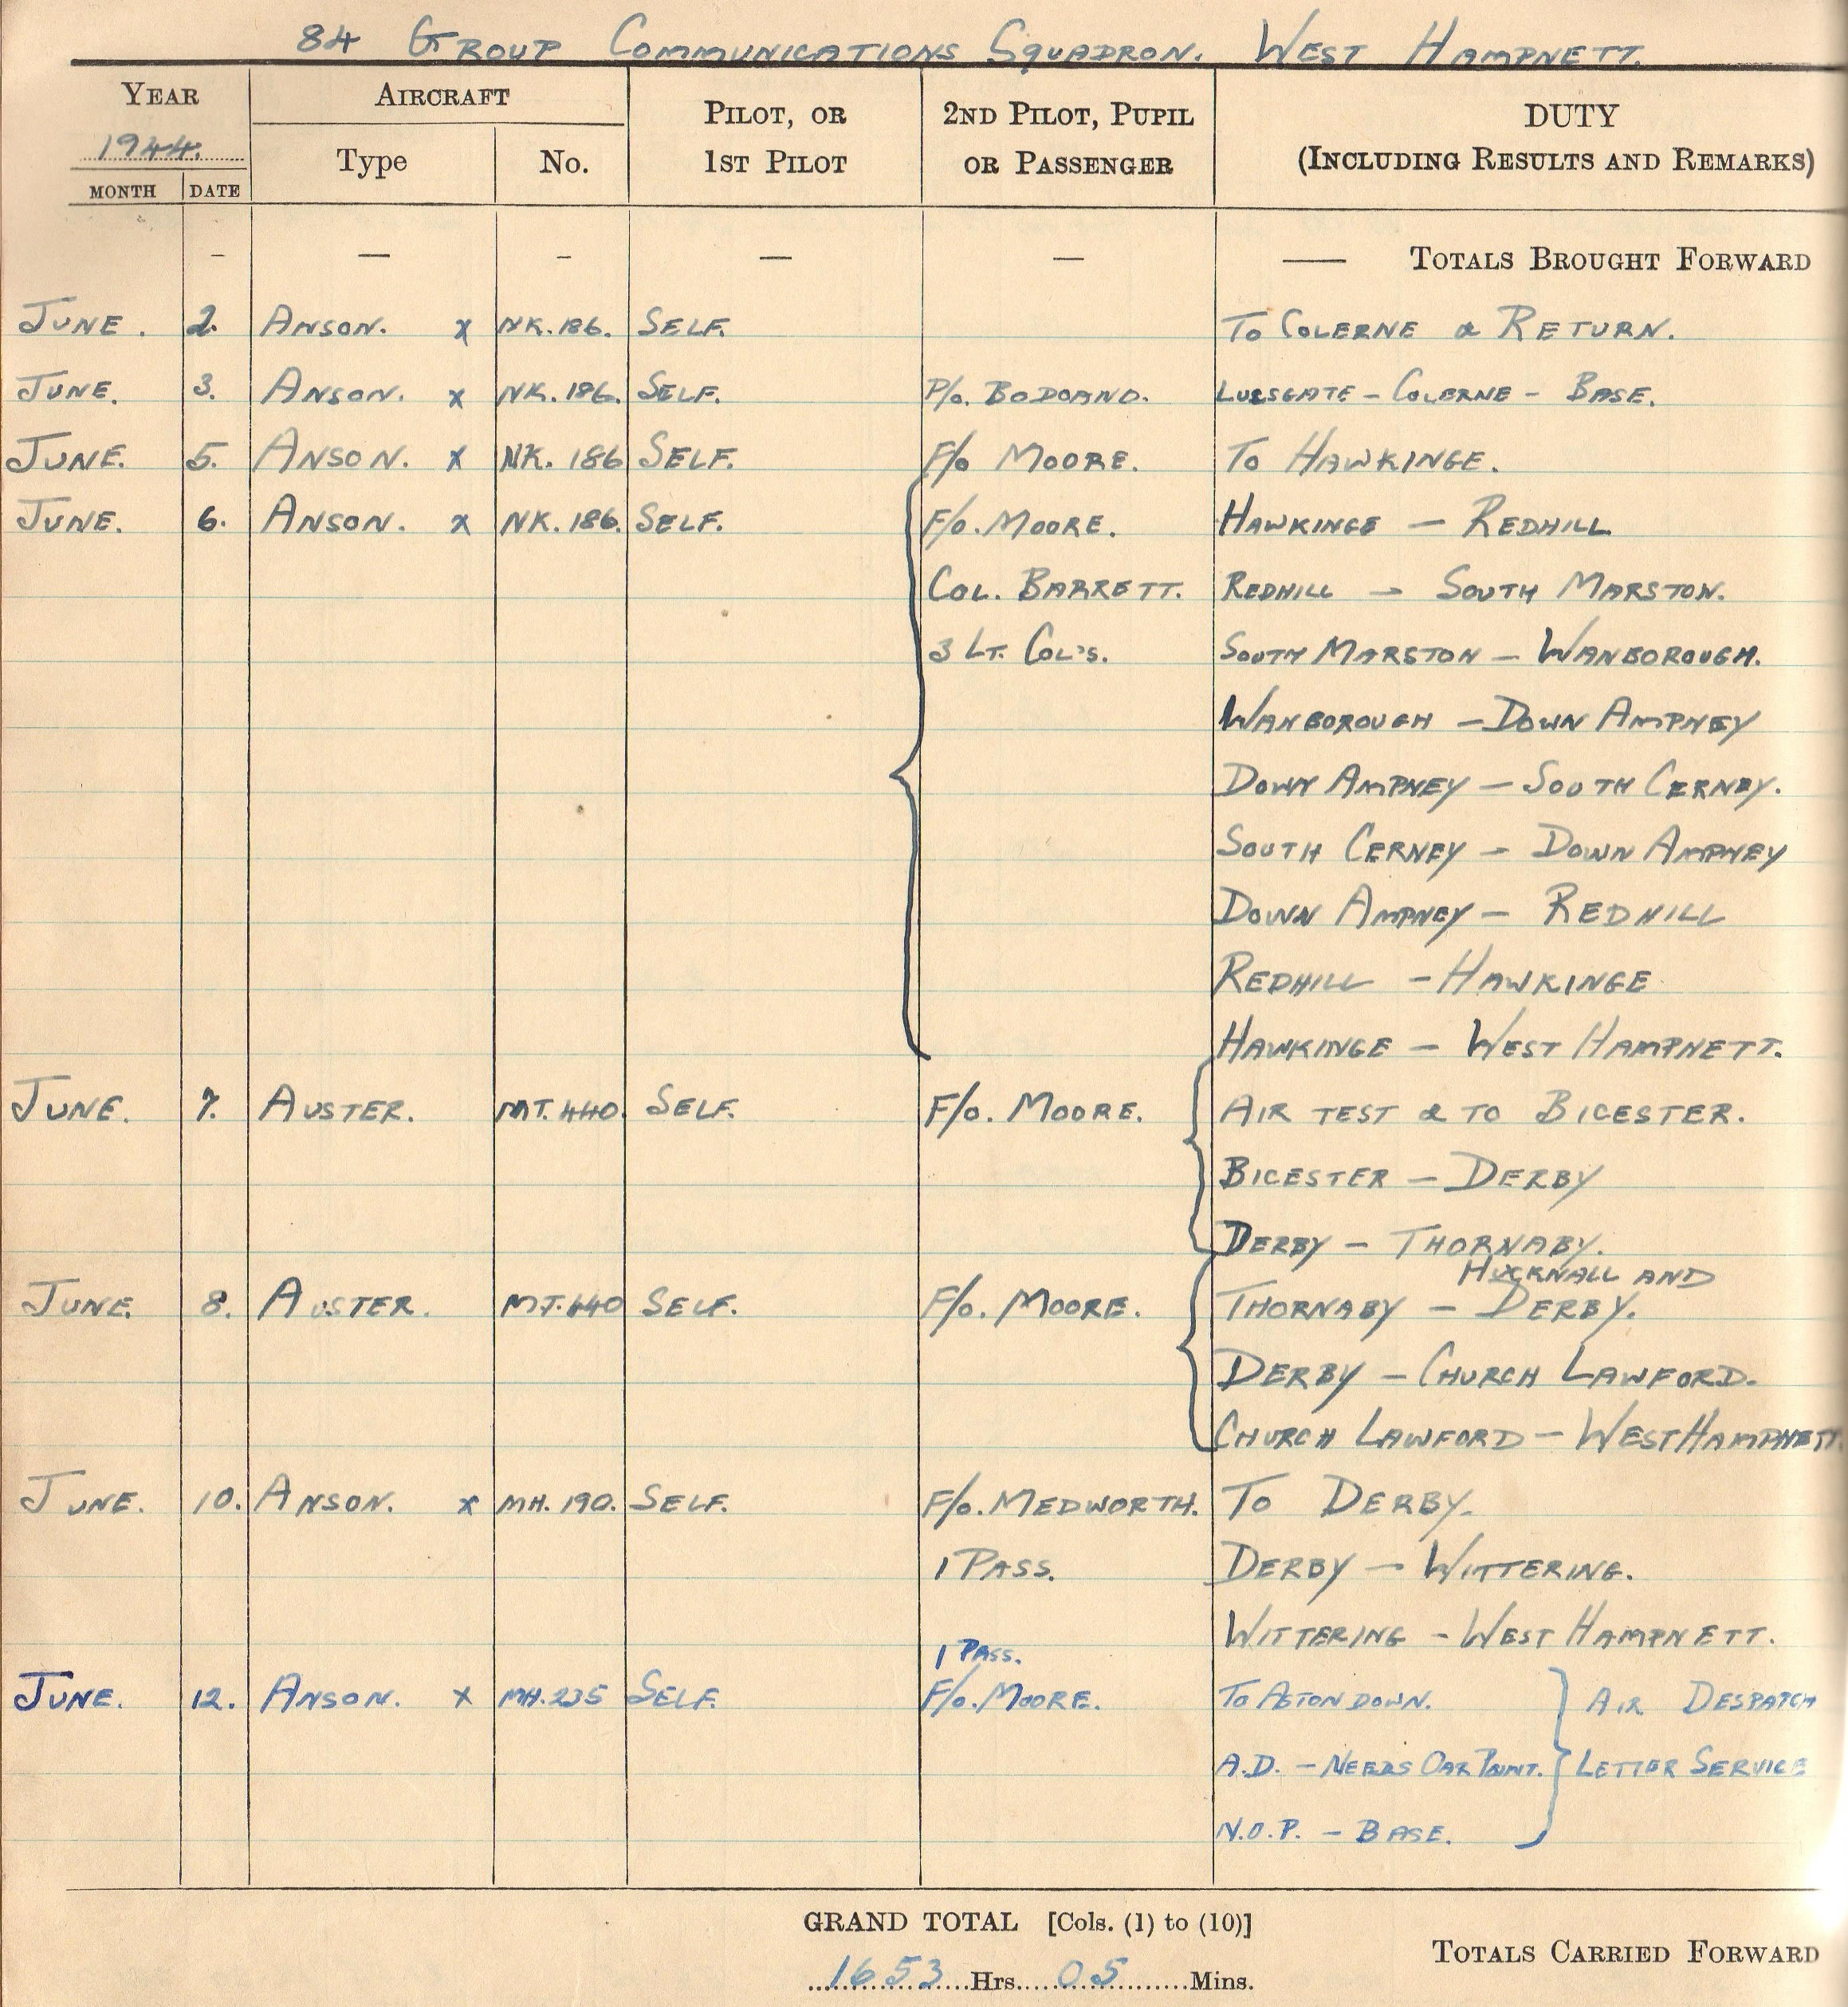 84 GROUP COMMUNICATIONS SQUADRON. WEST HAMPNETT.
YEAR AIRCRAFT PILOT, OR 2ND PILOT, PUPIL DUTY
1944. Type No. 1ST PILOT OR PASSENGER (INCLUDING RESULTS AND REMARKS)
MONTH DATE
– — – — — — TOTALS BROUGHT FORWARD
JUNE. 2. ANSON. x NK.186. SELF. TO COLERNE & RETURN.
JUNE. 3. ANSON. x NK.186. SELF. P/O. BODDAND. LULSGATE – COLERNE – BASE.
JUNE. 5. ANSON. x NK.186 SELF. F/O MOORE. TO HAWKINGE.
JUNE. 6. ANSON. x NK.186. SELF. F/O. MOORE. HAWKINGE — REDHILL
COL. BARRETT. REDHILL – SOUTH MARSTON.
3 LT. COL'S. SOUTH MARSTON – WANBOROUGH.
WANBOROUGH – DOWN AMPNEY
DOWN AMPNEY – SOUTH CERNEY.
SOUTH CERNEY – DOWN AMPNEY
DOWN AMPNEY – REDHILL
REDHILL – HAWKINGE
HAWKINGE – WEST HAMPNETT.
JUNE. 7. AUSTER. MT.440. SELF. F/O. MOORE. AIR TEST & TO BICESTER.
BICESTER – DERBY
DERBY – THORNABY.
HUCKNALL AND
JUNE. 8. AUSTER. MT.440 SELF. F/O. MOORE. THORNABY – DERBY.
DERBY – CHURCH LAWFORD.
CHURCH LAWFORD – WEST HAMPNETT.
JUNE. 10. ANSON. x MH.190. SELF. F/O. MEDWORTH. TO DERBY.
1 PASS. DERBY – WITTERING.
WITTERING – WEST HAMPNETT.
1 PASS.
JUNE. 12. ANSON. x MH.235 SELF. F/O. MOORE. TO ASTON DOWN. AIR DESPATCH
A.D. – NEEDS OAR POINT. LETTER SERVICE
N.O.P. – BASE.
GRAND TOTAL [Cols. (1) to (10)]
TOTALS CARRIED FORWARD
1653 Hrs. 05 Mins.